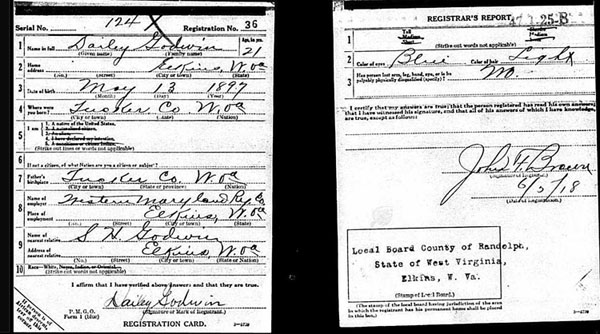 Serial No. 124 X Registration No. 36
1 Name in full Dailey Godwin Age, in yrs. 21
(Given name) (Family name)
2 Home address Elkins, W. Va
(No.) (Street) (City or town) (State)
3 Date of birth May 13 1897
(Month) (Day) (Year)
4 Where were you born? Tucker Co. W. Va
(City or town) (State) (Nation)
5 I am
1. A native of the United States.
2. A naturalized citizen.
3. An alien.
4. I have declared my intention.
5. A noncitizen or citizen Indian.
(Strike out lines or words not applicable)
6 If not a citizen, of what Nation are you a citizen or subject?
7 Father's birthplace Tucker Co. W. Va
(City or town) (State or province) (Nation)
8 Name of employer Western Maryland Ry. Co
Place of employment Elkins, W. Va
(No.) (Street) (City or town) (State)
9 Name of nearest relative S. H. Godwin
Address of nearest relative Elkins, W. Va
(No.) (Street) (City or town) (State or Nation)
10 Race—White, Negro, Indian, or Oriental
(Strike out words not applicable)
I affirm that I have verified above answers and that they are true.
Dailey Godwin
P. M. G. O.
Form 1 (blue)
(Signature or Mark of Registrant.)
REGISTRATION CARD.
If person is of African descent, cut off this corner
REGISTRAR'S REPORT 25-B
1 Tall
Medium
Short
Slender
Medium
Stout
(Strike out words not applicable)
2 Color of eyes Blue Color of hair Light
3 Has person lost arm, leg, hand, eye, or is he palpably physically disqualified? (specify) No
I certify that my answers are true; that the person registered has read his own answers; that I have witnessed his signature, and that all of his answers of which I have knowledge are true, except as follows:
John F. Brown
(Signature of Registrar)
6/5/18
(Date of Registration)
Local Board County of Randolph,
State of West Virginia,
Elkins, W. Va.
(Stamp of Local Board.)
(The stamp of the local board having jurisdiction of the area in which the registrant has his permanent home shall be placed in this box.)